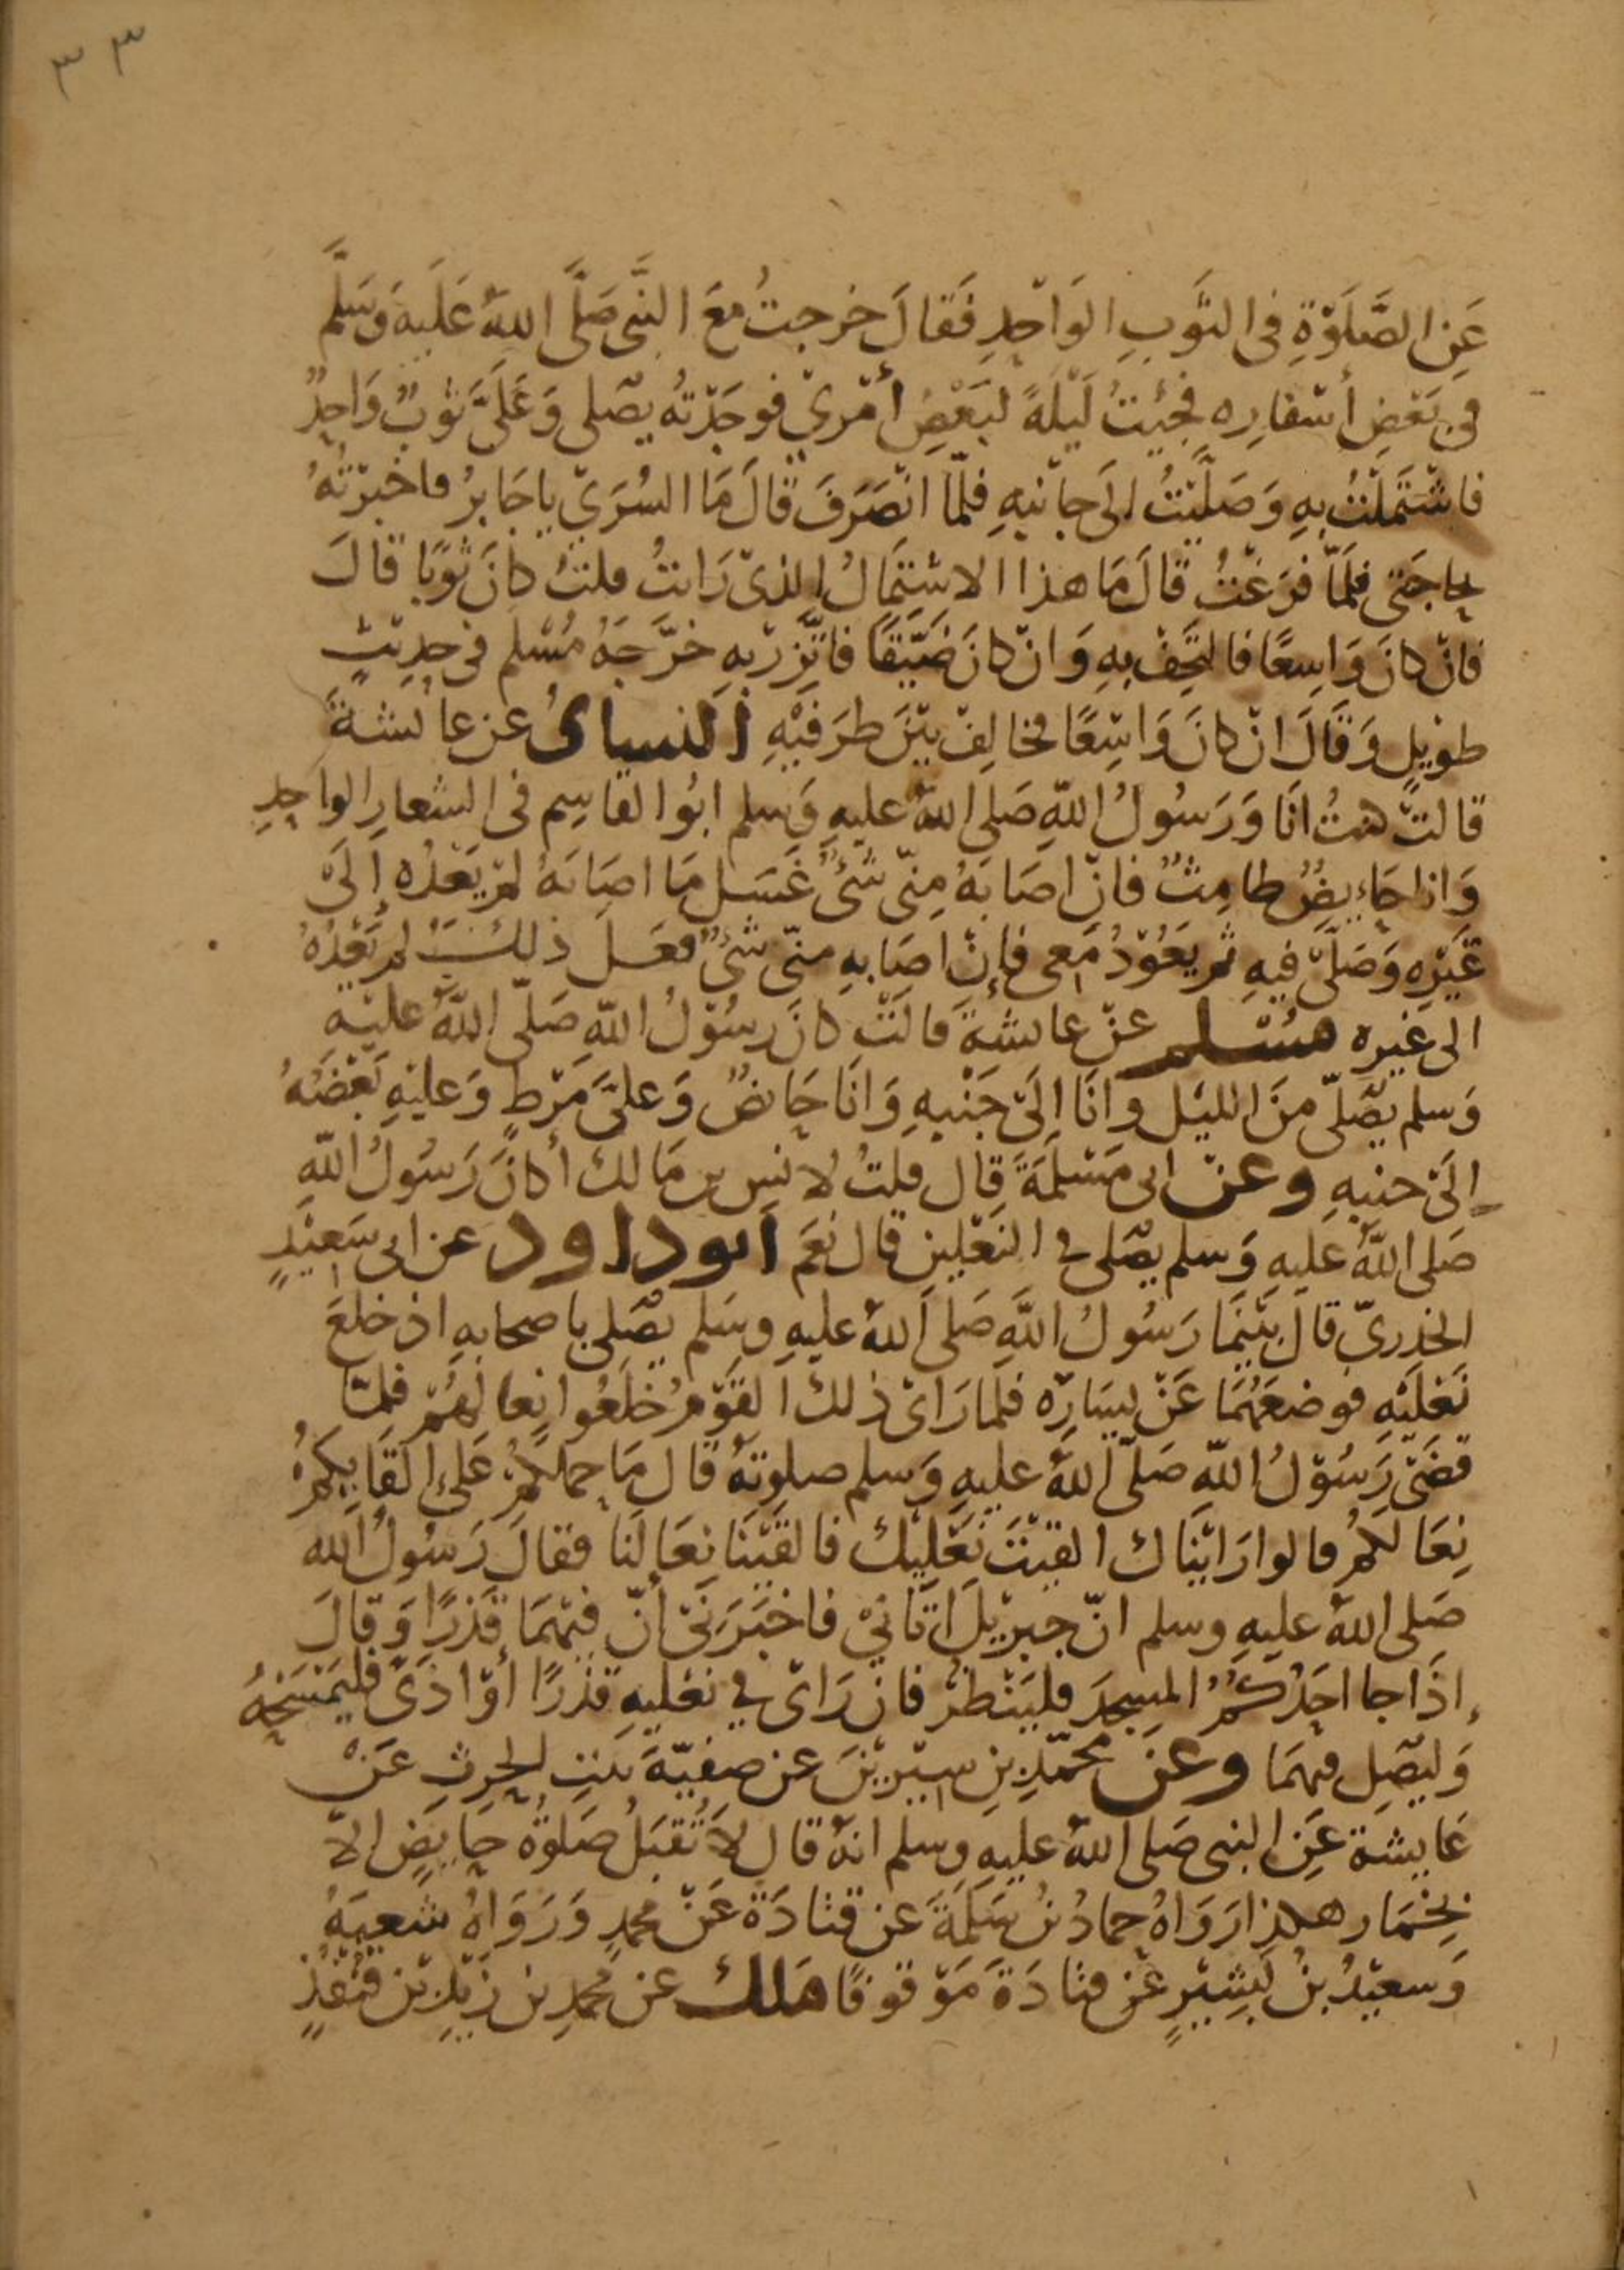 ٣٣
عَنِ الصَّلَوٰةِ فى الثَّوبِ الوَاحِدِ فَقَالَ خرجتُ مَعَ النَّبى صَلَّى اللهُ عَلَيهِ وَسَلَّم
فِى بَعْضِ أسْفارِه فَجِيْتُ لَيْلَةً لبَعْضِ أمْرِيْ فوجَدْتُه يُصَلى وَعَلَىَّ ثوبٌ وَاحِدٌ
فاشْتَمَلْتُ بهِ وَصَلَّيْتُ الَى جانبِهِ فلمّا انْصَرَفَ قالَ مَا السُرَىْ ياجَابِرُ فاخبرْتُهُ
بحاجَتى فَلَمَّا فَرَغْتُ قالَ مَا هذا الاشْتِمَالُ الذىْ رَايتُ قلتُ كانَ ثَوْبًا قالَ
فانْ كانَ وَاسِعًا فالتَحِفْ بهِ وَانْ كانَ ضَيّقًا فاتَّزِرْ بهِ خرَّجَهُ مُسْلم فى حدِيْثٍ
طوْيلٍ وَقَالَ انْ كانَ وَاسِعًا فخالِفْ بَيْنَ طرَفَيْهِ النساىُ عن عائشةَ
قالتْ كنتُ انَا وَرَسُولُ اللهِ صَلى اللهُ عليهِ وَسلم ابُوا القاسِم فى الشعارِ الواحِدِ
وَاناحَايِضٌ طامِثٌ فانْ اصَابَهُ مِنّى شَىْءٌ غَسَلَ مَا اصَابَهُ لمْ يَعْدُه إلَىْ
غَيْرِهِ وَصَلَّى فيهِ ثم يَعُوْدُ مَعى فإنْ اصَابهِ منّى شىْءٌ فعَلَ ذلكَ لم يَعْدُهُ
الى غيره مُسْلم عنْ عايشةَ قالتْ كانَ رسُوْلُ اللهِ صَلّى اللهُ عليْه
وَسلم يصَلّى منَ الليْل وانَا الَىْ جَنْبهِ وَانَا حَايضٌ وَعلىَّ مَرْطٍ وَعليْهِ بَعْضَهُ
إلَىْ جنبهِ وعنْ ابى مَسْلَمَةَ قال قلتُ لانسِ بن مَالك أكانَ رَسُولُ اللهِ
صَلى اللهُ عليهِ وَسلم يصَلى فى النعْلين قال نعَم ابوداود عن ابى سَعِيْدٍ
الخدرىّ قال بَيْنمَا رَسُولُ اللهِ صَلى اللهُ عليهِ وسَلم يصَلى باصحابهِ اذ خلعَ
نَعْلَيْهِ فوضعَهُمَا عَنْ يسَارِه فلمارَاىْ ذلك القوْمُ خَلعُوا نِعا لَهُمْ فلمّا
قضَىْ رَسُوْلُ اللهِ صَلّى اللهُ عليهِ وَسلم صلوتهُ قال مَا حملكُمْ عَلى القَايكُمْ
نِعَالكُمْ قالوا رَايْنَاك القيْتَ نَعْلَيْك فالقَيْنَا نِعَالنَا فقالَ رَسُولُ الله
صَلى اللهُ عليهِ وسلم انّ جبرْيلَ اتَانِيْ فاخبَرَنىْ أنّ فيْهمَا قَذرًا وَقالَ
إذَا جا احَدُكُمُ المسجدَ فليَنْظرْ فان رَاىْ في نعْليهِ قذرًا أوْ اذىً فليَمْسَحْهُ
وَليصَلِ فيهمَا وعنْ محمّدِ بنِ سِيْريْنَ عن صفيّةَ بنتِ الحرثِ عَنْ
عَايشة عَنِ النبى صَلى اللهُ عليهِ وسلم انهُ قال لاتُقبَلُ صَلوةُ حايَضٍ الاّ
بِخِمَار هكذا رَوَاهُ حمادُ بنُ سَلَمَةَ عن قتادَةَ عَنْ محمدٍ وَرَوَاهُ شعبَةُ
وَسعيْدُ بنُ بَشِيْرٍ عَنِ قتادَةَ مَوْقوفًا مَلك عن محمدِ بنِ زَيْدِ بْن قُنْفُذٍ